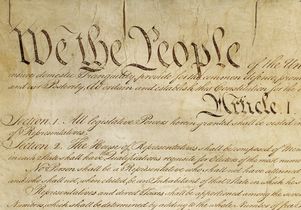 We the People of the Uni
insure domestic Tranquility, provide for the common defence, promo
and our Posterity, do ordain and establish this Constitution for the
Article. I
Section. 1. All legislative Powers herein granted shall be vested in
of Representatives.
Section. 2. The House of Representatives shall be composed of Mem
in each State shall have Qualifications requisite for Electors of the most nume
No Person shall be a Representative who shall not have attained
and who shall not, when elected, be an Inhabitant of that State in which he
Representatives and direct Taxes shall be apportioned among the seve
Numbers, which shall be determined by adding to the whole Number of